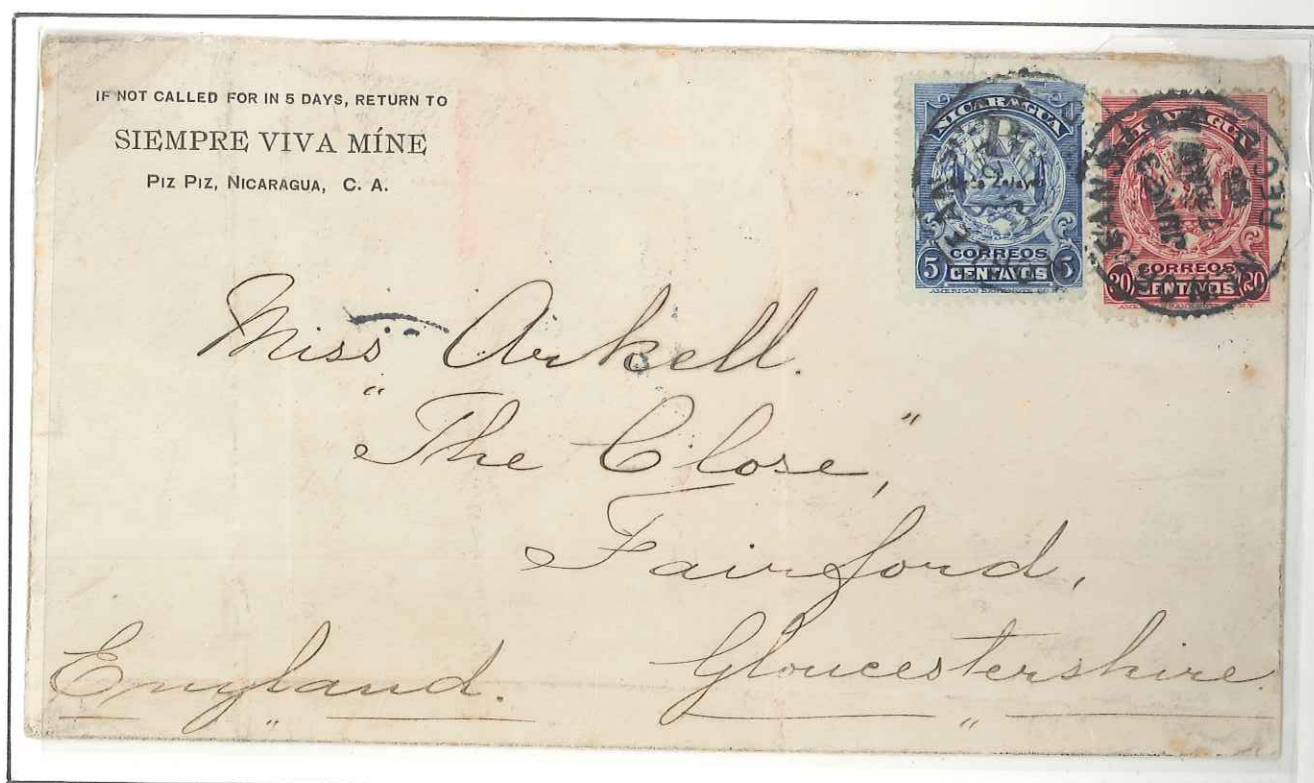 IF NOT CALLED FOR IN 5 DAYS, RETURN TO
SIEMPRE VIVA MÍNE
PIZ PIZ, NICARAGUA, C. A.
NICARAGUA
CORREOS
5 CENTAVOS 5
NICARAGUA
CORREOS
20 CENTAVOS 20
REC'D
Miss Arkell.
"The Close,"
Fairford,
Gloucestershire.
England.